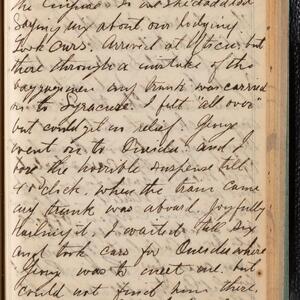 saying my about our lodging
Took Cars. Arrived at Utica, but
there through a mistake of the
baggageman my trunk was carried
on to Syracuse. I felt "all over"
but could get no relief.
went on to Oneida and I
bore the horrible suspense till
o'clock. when the train came
my trunk was aboard. Joyfully
I waited till six
and took cars for Oneida where
was to meet me. but
could not find him there.